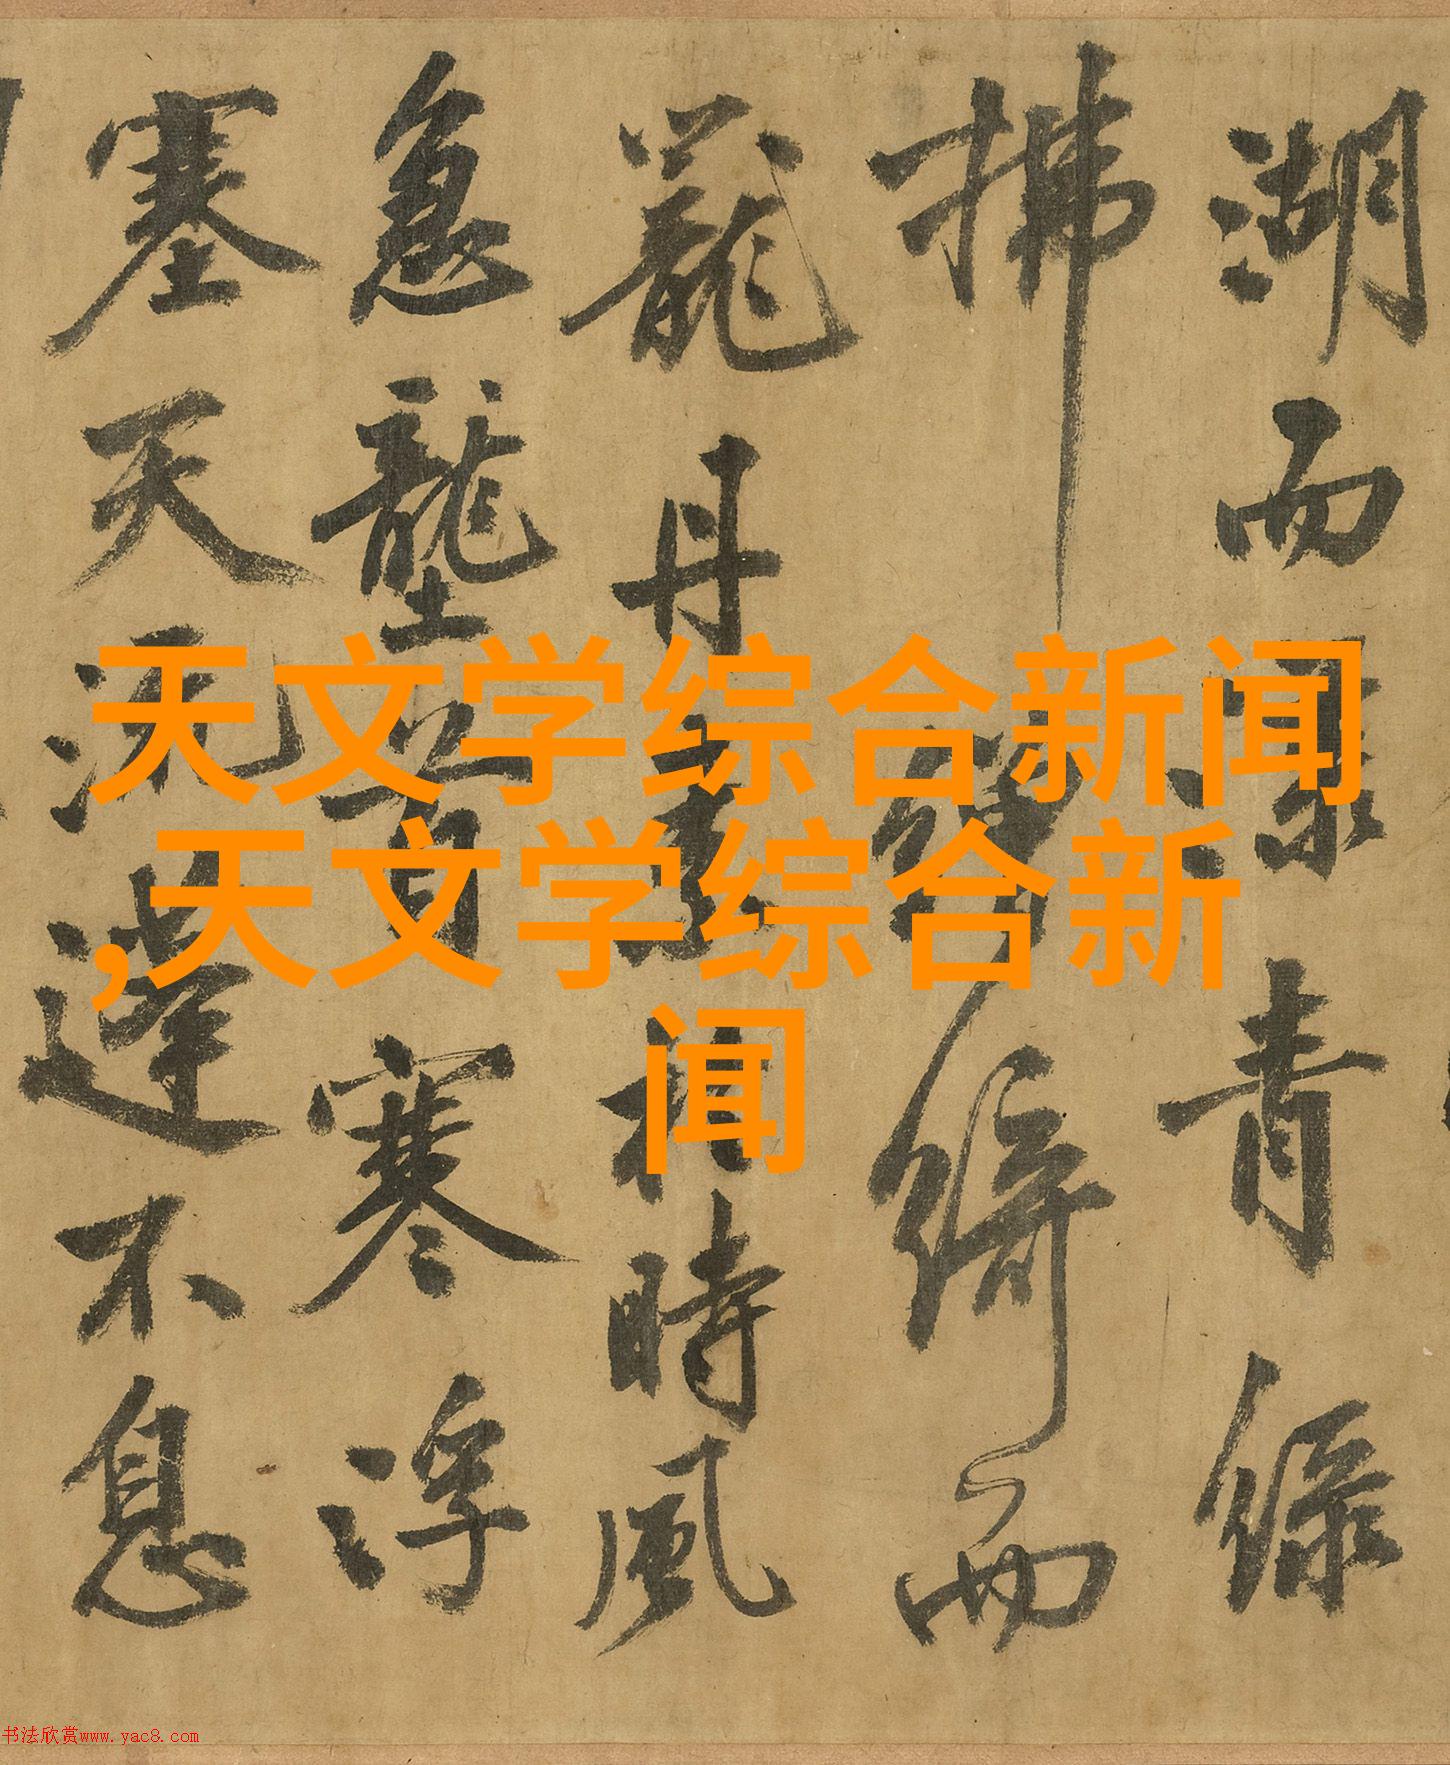 湖而青緑
拂綺而
丹相時風
急壟首寒浮
塞天流不息
天文学综合新闻
,天文学综合新
闻
书法欣赏www.yac8.com